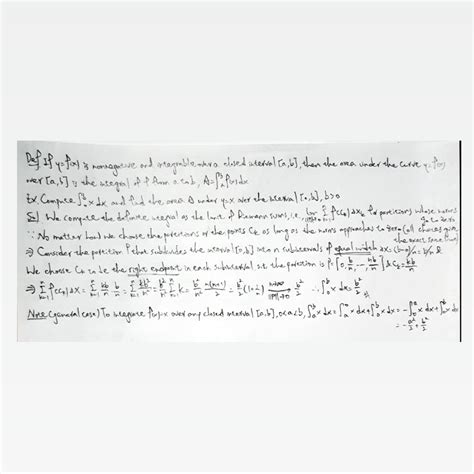 Def If y=f(x) is nonnegative and integrable over a closed interval [a,b], then the area under the curve y=f(x)
over [a,b] is the integral of f from a to b, A=∫ₐᵇf(x)dx
Ex. Compute ∫₀ᵇ x dx and find the area A under y=x over the interval [0,b], b>0
Sol We compute the definite integral as the limit of Riemann sums, i.e. lim_{||P||→0} Σ f(c_k) Δx_k for partitions whose norms go to zero
∵ No matter how we choose the partitions or the points c_k as long as the norms approaches to zero (all choices give the exact same limit)
⇒ Consider the partition P that subdivides the interval [0,b] into n subintervals of equal width Δx=(b-0)/n = b/n, &
We choose c_k to be the right endpoint in each subinterval at the partition is P={0, b/n, ..., nb/n} c_k=kb/n
⇒ Σ_{k=1}^n f(c_k)Δx = Σ_{k=1}^n kb/n · b/n = Σ_{k=1}^n kb²/n² = b²/n² Σ_{k=1}^n k = b²/n² · n(n+1)/2 = b²/2 (1+1/n) → b²/2 ∴ ∫₀ᵇ x dx = b²/2
Note (general case) To integrate f(x)=x over any closed interval [a,b], 0<a<b, ∫ₐᵇ x dx = ∫ₐ⁰ x dx + ∫₀ᵇ x dx = -∫₀ᵃ x dx + ∫₀ᵇ x dx
= -a²/2 + b²/2